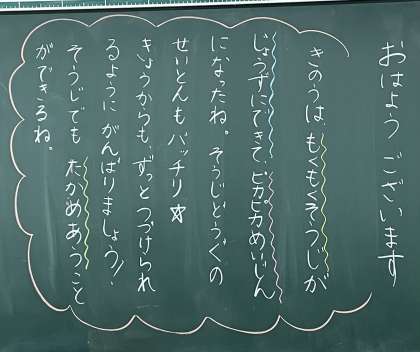 おはようございます
きのうは、もくもくそうじが
じょうずにできて、ピカピカめいじん
になったね。そうじどうぐの
せいとんもバッチリ☆
きょうからも、ずっとつづけられ
るようにがんばりましょう!!
そうじでもたかめあうこと
ができるね。